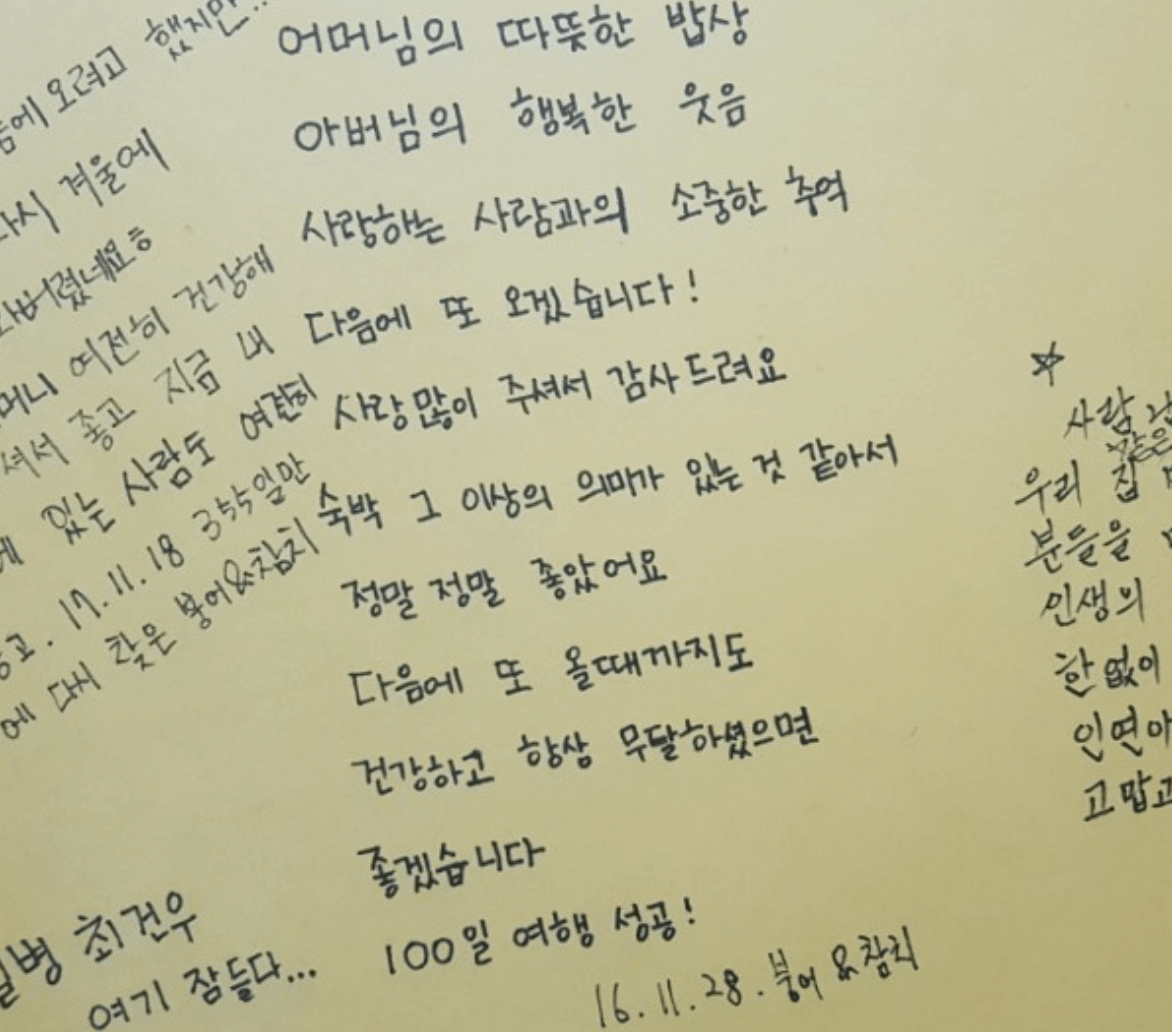 어머님의 따뜻한 밥상
아버님의 행복한 웃음
사랑하는 사람과의 소중한 추억
다음에 또 오겠습니다!
사랑 많이 주셔서 감사드려요
숙박 그 이상의 의미가 있는 것 같아서
정말 정말 좋았어요
다음에 또 올때까지도
건강하고 항상 무탈하셨으면
좋겠습니다
100일 여행 성공!
16.11.28. 붕어&참치
오려고 했지만..
겨울에
여전히 건강해
좋고 지금 내
있는 사람도 여전히
17.11.18 355일만
에 다시 찾은 붕어&참치
최건우
여기 잠들다...
☆
사람
같은
우리 집
분들을
인생의
한없이